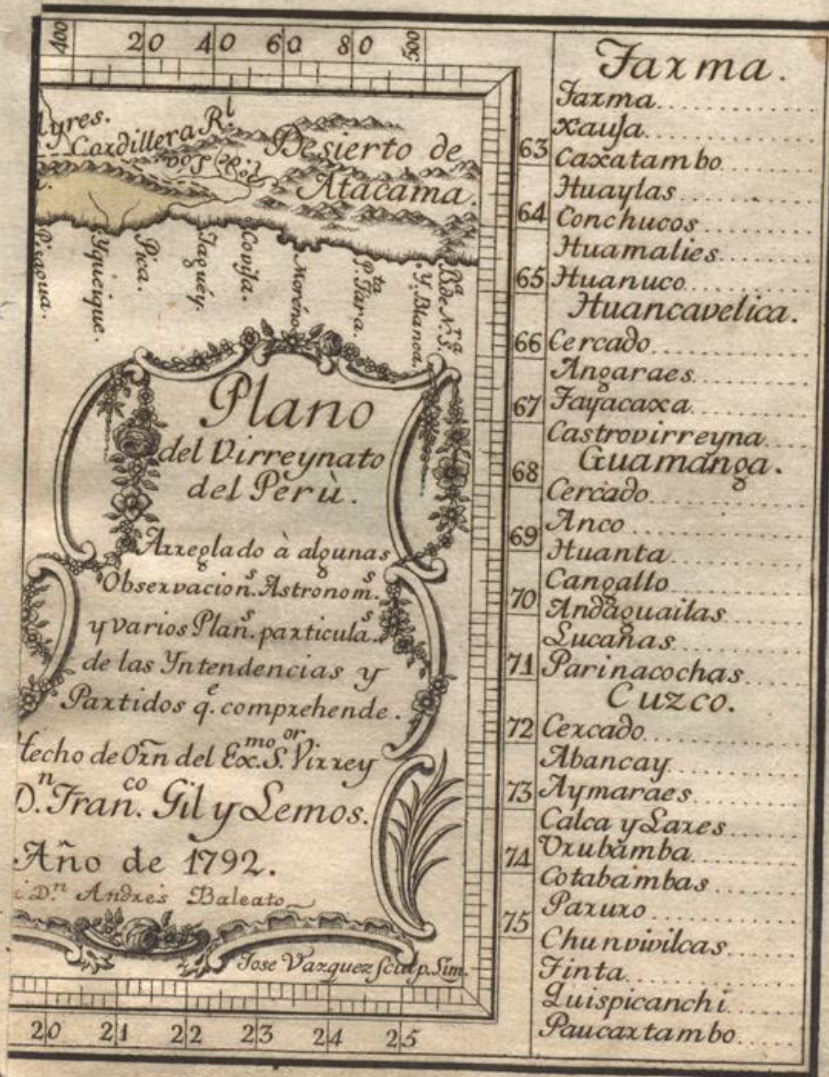 400 20 40 60 80 500
Ayres.
Cordillera R.l
Desierto de
Atacama.
Pisagua.
Yquicique.
Pica.
Jaguéy.
Covija.
Moréno
P.ta Tiara.
Y. Blanca.
B.a de N.S.ra
Plano
del Virreynato
del Perù.
Arreglado à algunas
Observacion.s Astronom.s
y varios Plan.s particula.s
de las Yntendencias y
Partidos q.e comprehende.
Hecho de Orñ del Ex.mo S.or Virrey
D.n Fran.co Gil y Lemos.
Año de 1792.
D.n Andrés Baleato
Jose Vazquez sculp. Lim.
20 21 22 23 24 25
63
64
65
66
67
68
69
70
71
72
73
74
75
Tarma.
Tarma
Xauja
Caxatambo
Huaylas
Conchucos
Huamalies
Huanuco
Huancavelica.
Cercado
Angaraes
Tayacaxa
Castrovirreyna
Guamanga.
Cercado
Anco
Huanta
Cangallo
Andaguailas
Lucanas
Parinacochas
Cuzco.
Cercado
Abancay
Aymaraes
Calca y Lares
Urubamba
Cotabambas
Paruro
Chunvivilcas
Tinta
Quispicanchi
Paucartambo